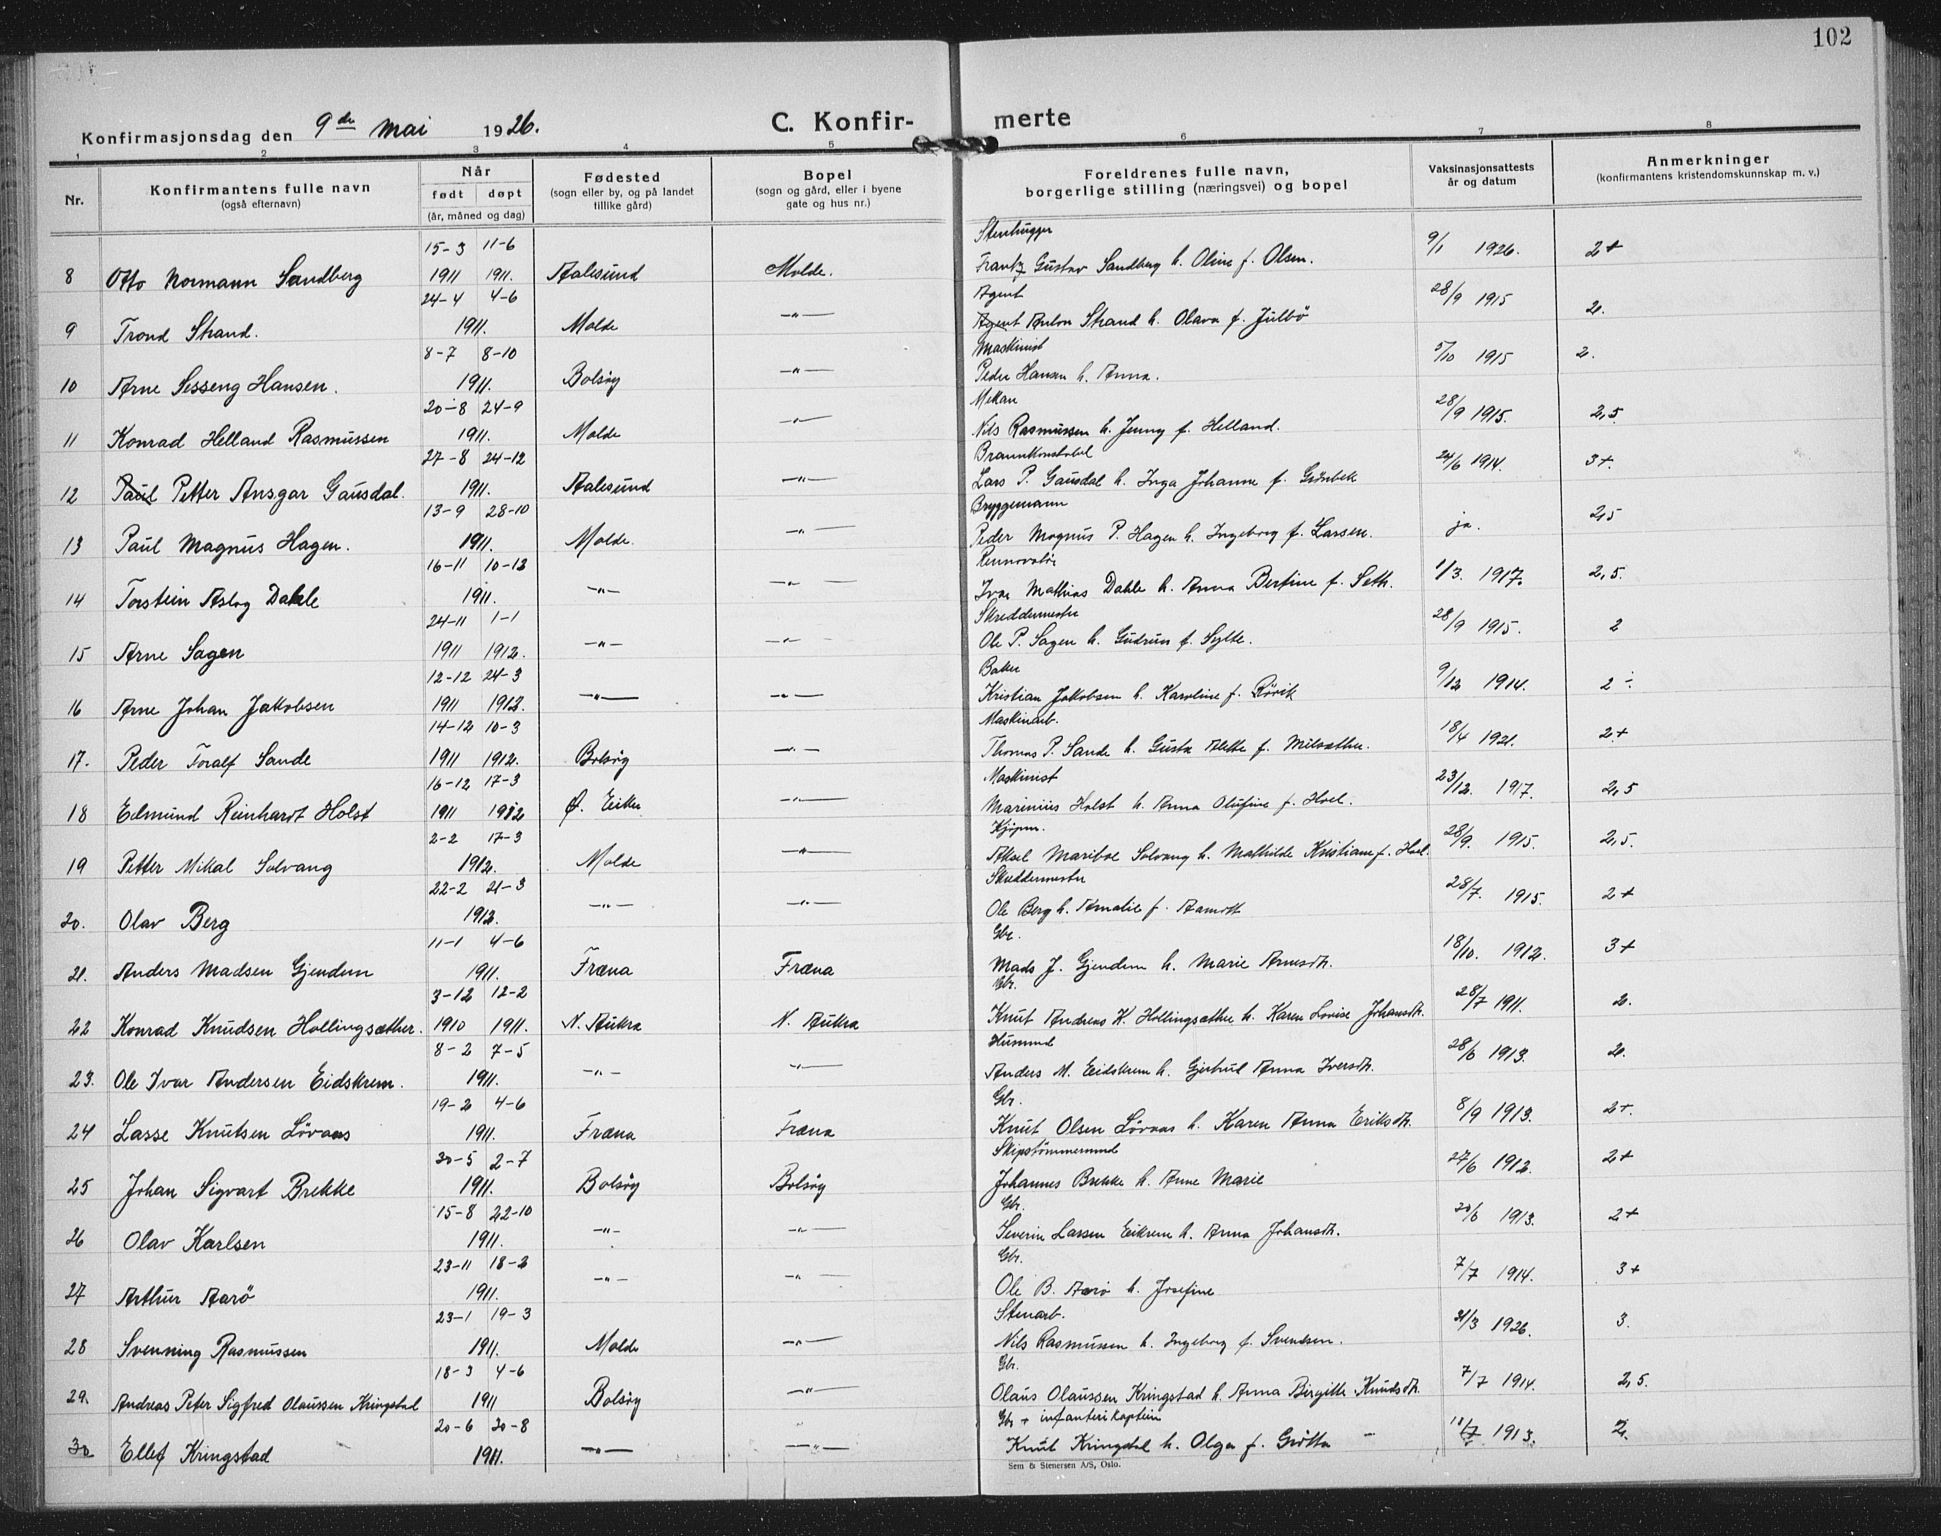 102
Konfirmasjonsdag den 9de mai 1926. C. Konfir- merte
1 2 3 4 5 6 7 8
Nr. Konfirmantens fulle navn (også efternavn) Når født døpt (år, måned og dag) Fødested (sogn eller by, og på landet tillike gård) Bopel (sogn og gård, eller i byene gate og hus nr.) Foreldrenes fulle navn, borgerlige stilling (næringsvei) og bopel Vaksinasjonsattests år og datum Anmerkninger (konfirmantens kristendomskunnskap m. v.)
15-3 11-6 Stenhugger
8 Otto Normann Sandberg 1911 1911. Aalesund Molde. Frantz Gustav Sandberg h. Oline f. Olsen. 9/1 1926. 2+
24-4 4-6 Agent
9 Trond Strand. 1911. Molde -"- Agent Anton Strand h. Olava f. Julbö 28/9 1915 2.
8-7 8-10 Maskinist
10 Arne Sesseng Hansen. 1911. Bolsøy -"- Peder Hansen h. Anna. 5/10 1915 2.
20-8 24-9 Mekan
11 Konrad Helland Rasmussen 1911. Molde -"- Nils Rasmussen h. Jenny f. Helland. 28/9 1915. 2,5
27-8 24-12 Brannkonstabel
12 Paul Petter Ansgar Gausdal. 1911. Aalesund -"- Lars P. Gausdal h. Inga Johanne f. Grönbek 24/6 1914. 3+.
13-9 28-10 Bryggemann
13 Paul Magnus Hagen. 1911. Molde. -"- Peder Magnus P. Hagen h. Ingeborg f. Larsen. ja. 2,5
16-11 10-12 Rennovatør
14 Torstein Aslog Dahle 1911. -"- -"- Ivar Mathias Dahle h. Anna Bertine f. Seth. 1/3. 1917. 2,5.
24-11 1-1 Skreddermester
15 Arne Sagen 1911 1912. -"- -"- Ole P. Sagen h. Gudrun f. Sylte. 28/9 1915. 2
12-12 24-3 Baker
16 Arne Johan Jakobsen 1911 1912. -"- -"- Kristian Jakobsen h. Karoline f. Rörvik 9/12 1914. 2 -.
14-12 10-3 Maskinarb.
17. Peder Toralf Sande 1911 1912. Bolsøy -"- Thomas P. Sande h. Gusta Alette f. Milsæther. 18/4 1921. 2+
16-12 17-3 Maskinist
18 Edmund Reinhardt Holst 1911 1912 Ø. Eiker -"- Marinius Holst h. Anna Olufine f. Hoel. 23/12. 1917. 2,5
2-2 17-3 Kjøpm.
19 Petter Mikal Solvang 1912. Molde -"- Aksel Mariboe Solvang h. Mathilde Kristiane f. Hoel. 28/9. 1915. 2,5.
22-2 21-3 Skreddermester
20. Olav Berg 1912. -"- -"- Ole Berg h. Amalie f. Aamott 28/7. 1915. 2+
11-1 4-6 Gbr.
21. Anders Madsen Gjendem 1911. Fræna Fræna Mads J. Gjendem h. Marie Arnesdtr. 18/10. 1912. 3+
3-12 12-2 Gbr.
22 Konrad Knudsen Hollingsæther. 1910 1911. N. Aukra N. Aukra Knut Andreas K. Hollingsæther h. Karen Lovise Johansdtr. 28/7 1911. 2.
8-2 7-5 Husmand
23. Ole Ivar Andersen Eidskrem. 1911. -"- -"- Anders M. Eidskrem h. Gjertrud Anna Iversdtr. 28/6 1913. 2.
19-2 4-6 Gbr.
24 Lasse Knutsen Lövaas 1911. Fræna Fræna Knut Olsen Lövaas h. Karen Anna Eriksdtr. 8/9 1913. 2+.
30-5 2-7 Skipstømmermand
25 Johan Sigvart Brekke 1911. Bolsøy Bolsøy Johannes Brekke h. Anne Marie 27/6 1912. 2+
15-8 22-10 Gbr.
26 Olav Karlsen 1911. -"- -"- Severin Larsen Eikrem h. Anna Johansdtr. 20/6 1913. 2+
23-11 18-2 Gbr.
27 Arthur Aarö 1911. -"- -"- Ole B. Aarö h. Josefine 7/7 1914. 3+
23-1 19-3 Stenarb.
28 Svenning Rasmussen 1911. Molde -"- Nils Rasmussen h. Ingeborg f. Svendsen. 31/3 1926. 3.
18-3 4-6 Gbr.
29. Andreas Peter Sigfred Olaussen Kringstad 1911 Bolsøy -"- Olaus Olaussen Kringstad h. Anna Birgitte Knudsdtr. 7/7 1914. 2,5.
20-6 20-8 Gbr + infanterikaptein
30 Ellef Kringstad 1911. -"- -"- Knut Kringstad h. Olga f. Grötta 1913. 2.
Sem & Stenersen A/S, Oslo.